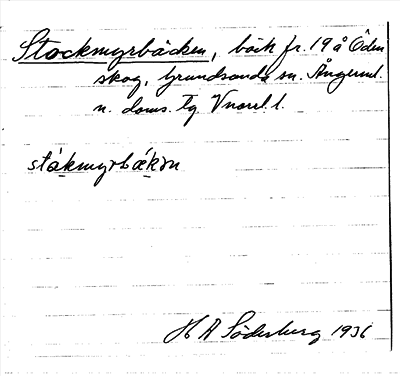 Stockmyrbäcken, bäck fr. 19 å Öden
skog, Grundsunda sn. Ångerml.
n. doms. tg. Vnorrl. l.
ståkmyrbäkɘn
H A Söderberg 1936